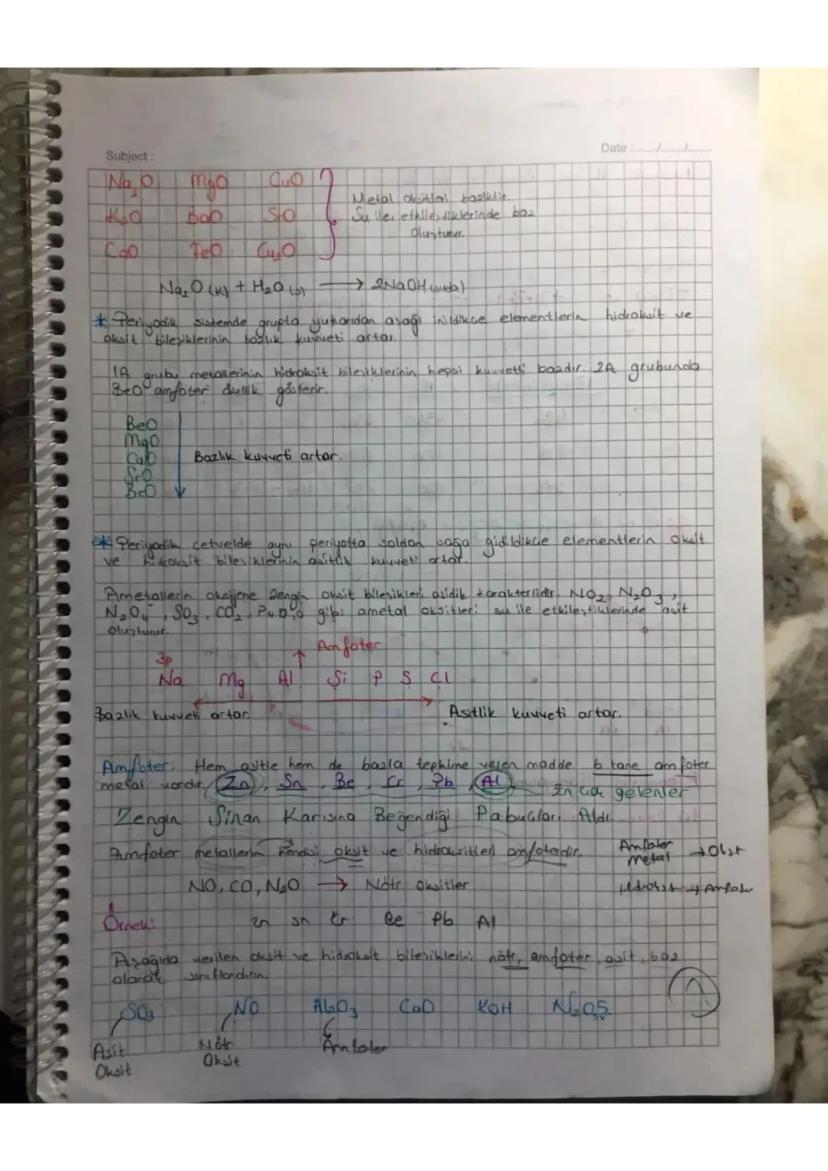 Subject :
Date :....../....../......
Na2O MgO CuO
K2O BaO SrO
CaO FeO Cu2O
Metal oksitleri baziktir.
Su ile etkileştiklerinde baz
oluşturur.
Na2O (k) + H2O (s) → 2NaOH (suda)
* Periyodik sistemde grupta yukarıdan aşağı inildikçe elementlerin hidroksit ve
oksit bileşiklerinin bazlık kuvveti artar.
1A grubu metallerinin hidroksit bileşiklerinin hepsi kuvvetli bazdır. 2A grubunda
BeO amfoter özellik gösterir.
BeO
MgO
CaO
Bazlık kuvveti artar.
SrO
BaO
* Periyodik cetvelde aynı periyotta soldan sağa gidildikçe elementlerin oksit
ve hidroksit bileşiklerinin asitlik kuvveti artar.
Ametallerin oksijene zengin oksit bileşikleri asidik karakterlidir. NO2, N2O3,
N2O4, SO3, CO2, P4O10 gibi ametal oksitleri su ile etkileştiklerinde asit
oluşturur.
Amfoter
3p
Na Mg Al Si P S Cl
Bazlık kuvveti artar. Asitlik kuvveti artar.
Amfoter: Hem asitle hem de bazla tepkime veren madde 6 tane amfoter
metal vardır. Zn, Sn, Be, Cr, Pb, Al En çok gelenler
Zengin Sinan Karısına Beğendiği Pabuçları Aldı.
Amfoter metallerin kendisi oksit ve hidroksitleri amfoterdir.
Amfoter
metal → Oksit
NO, CO, N2O → Nötr Oksitler
Hidroksit → Amfoter
Örnek: Zn Sn Cr Be Pb Al
Aşağıda verilen oksit ve hidroksit bileşiklerini nötr, amfoter, asit, baz
olarak sınıflandırın.
SO3 NO Al2O3 CaO KOH N2O5
Asit
Oksit
Nötr
Oksit
Amfoter